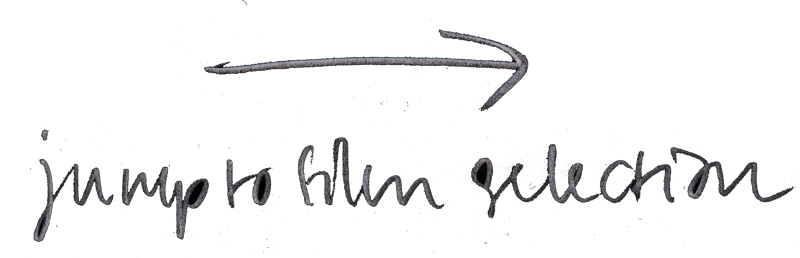 jump to film selection